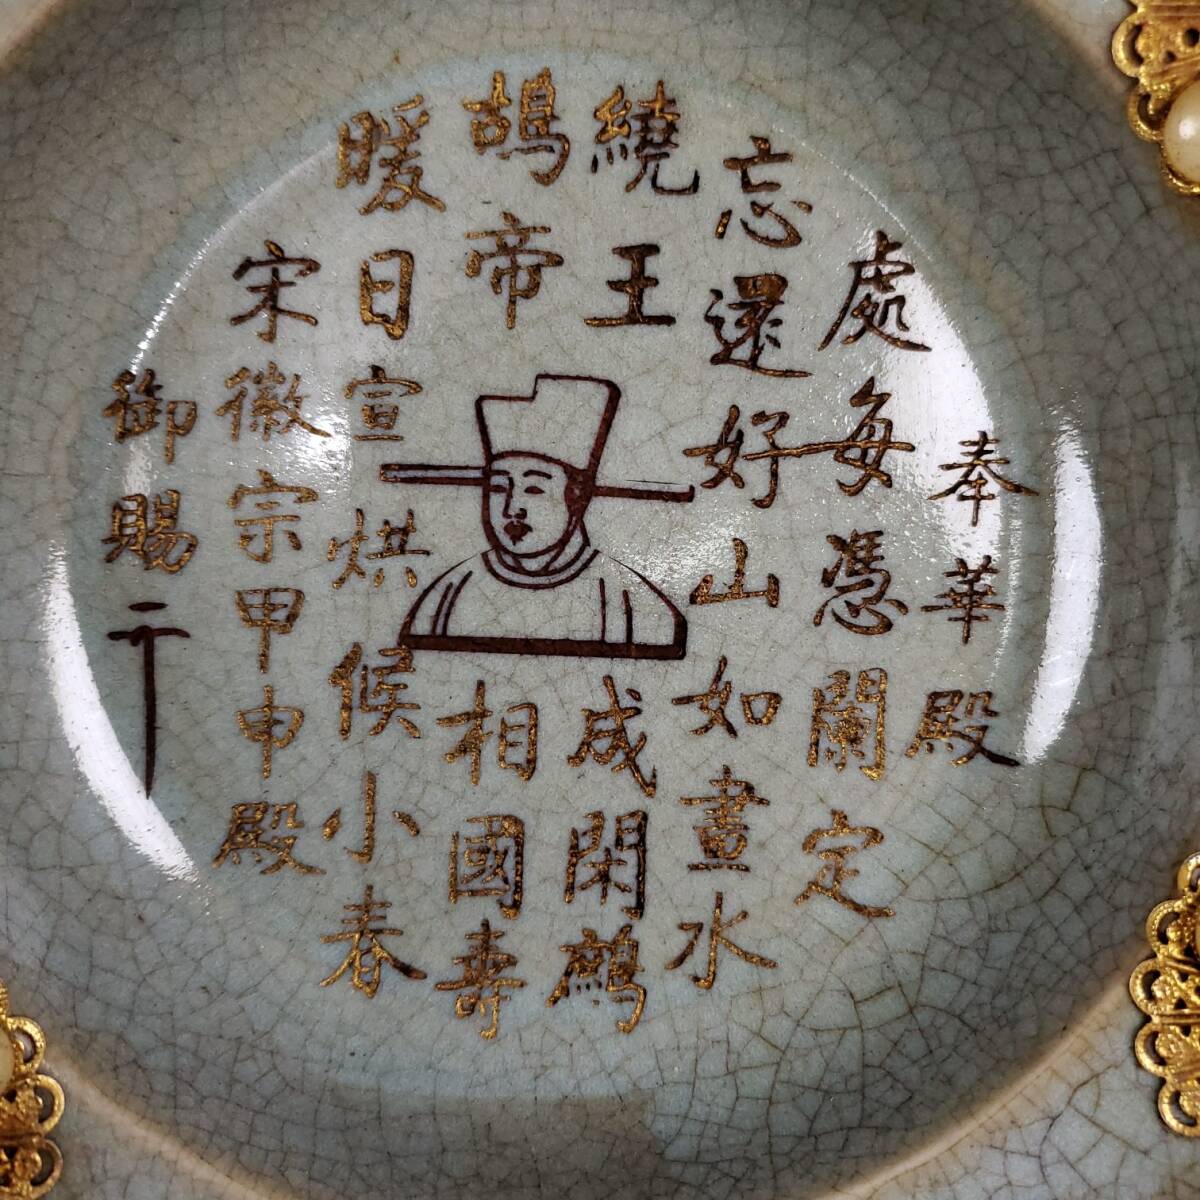 奉華殿
處每憑闌定
忘還好山如畫水
繞王成閑鷓
鴣帝相國壽
暖日宣烘候小春
宋徽宗甲申殿
御賜